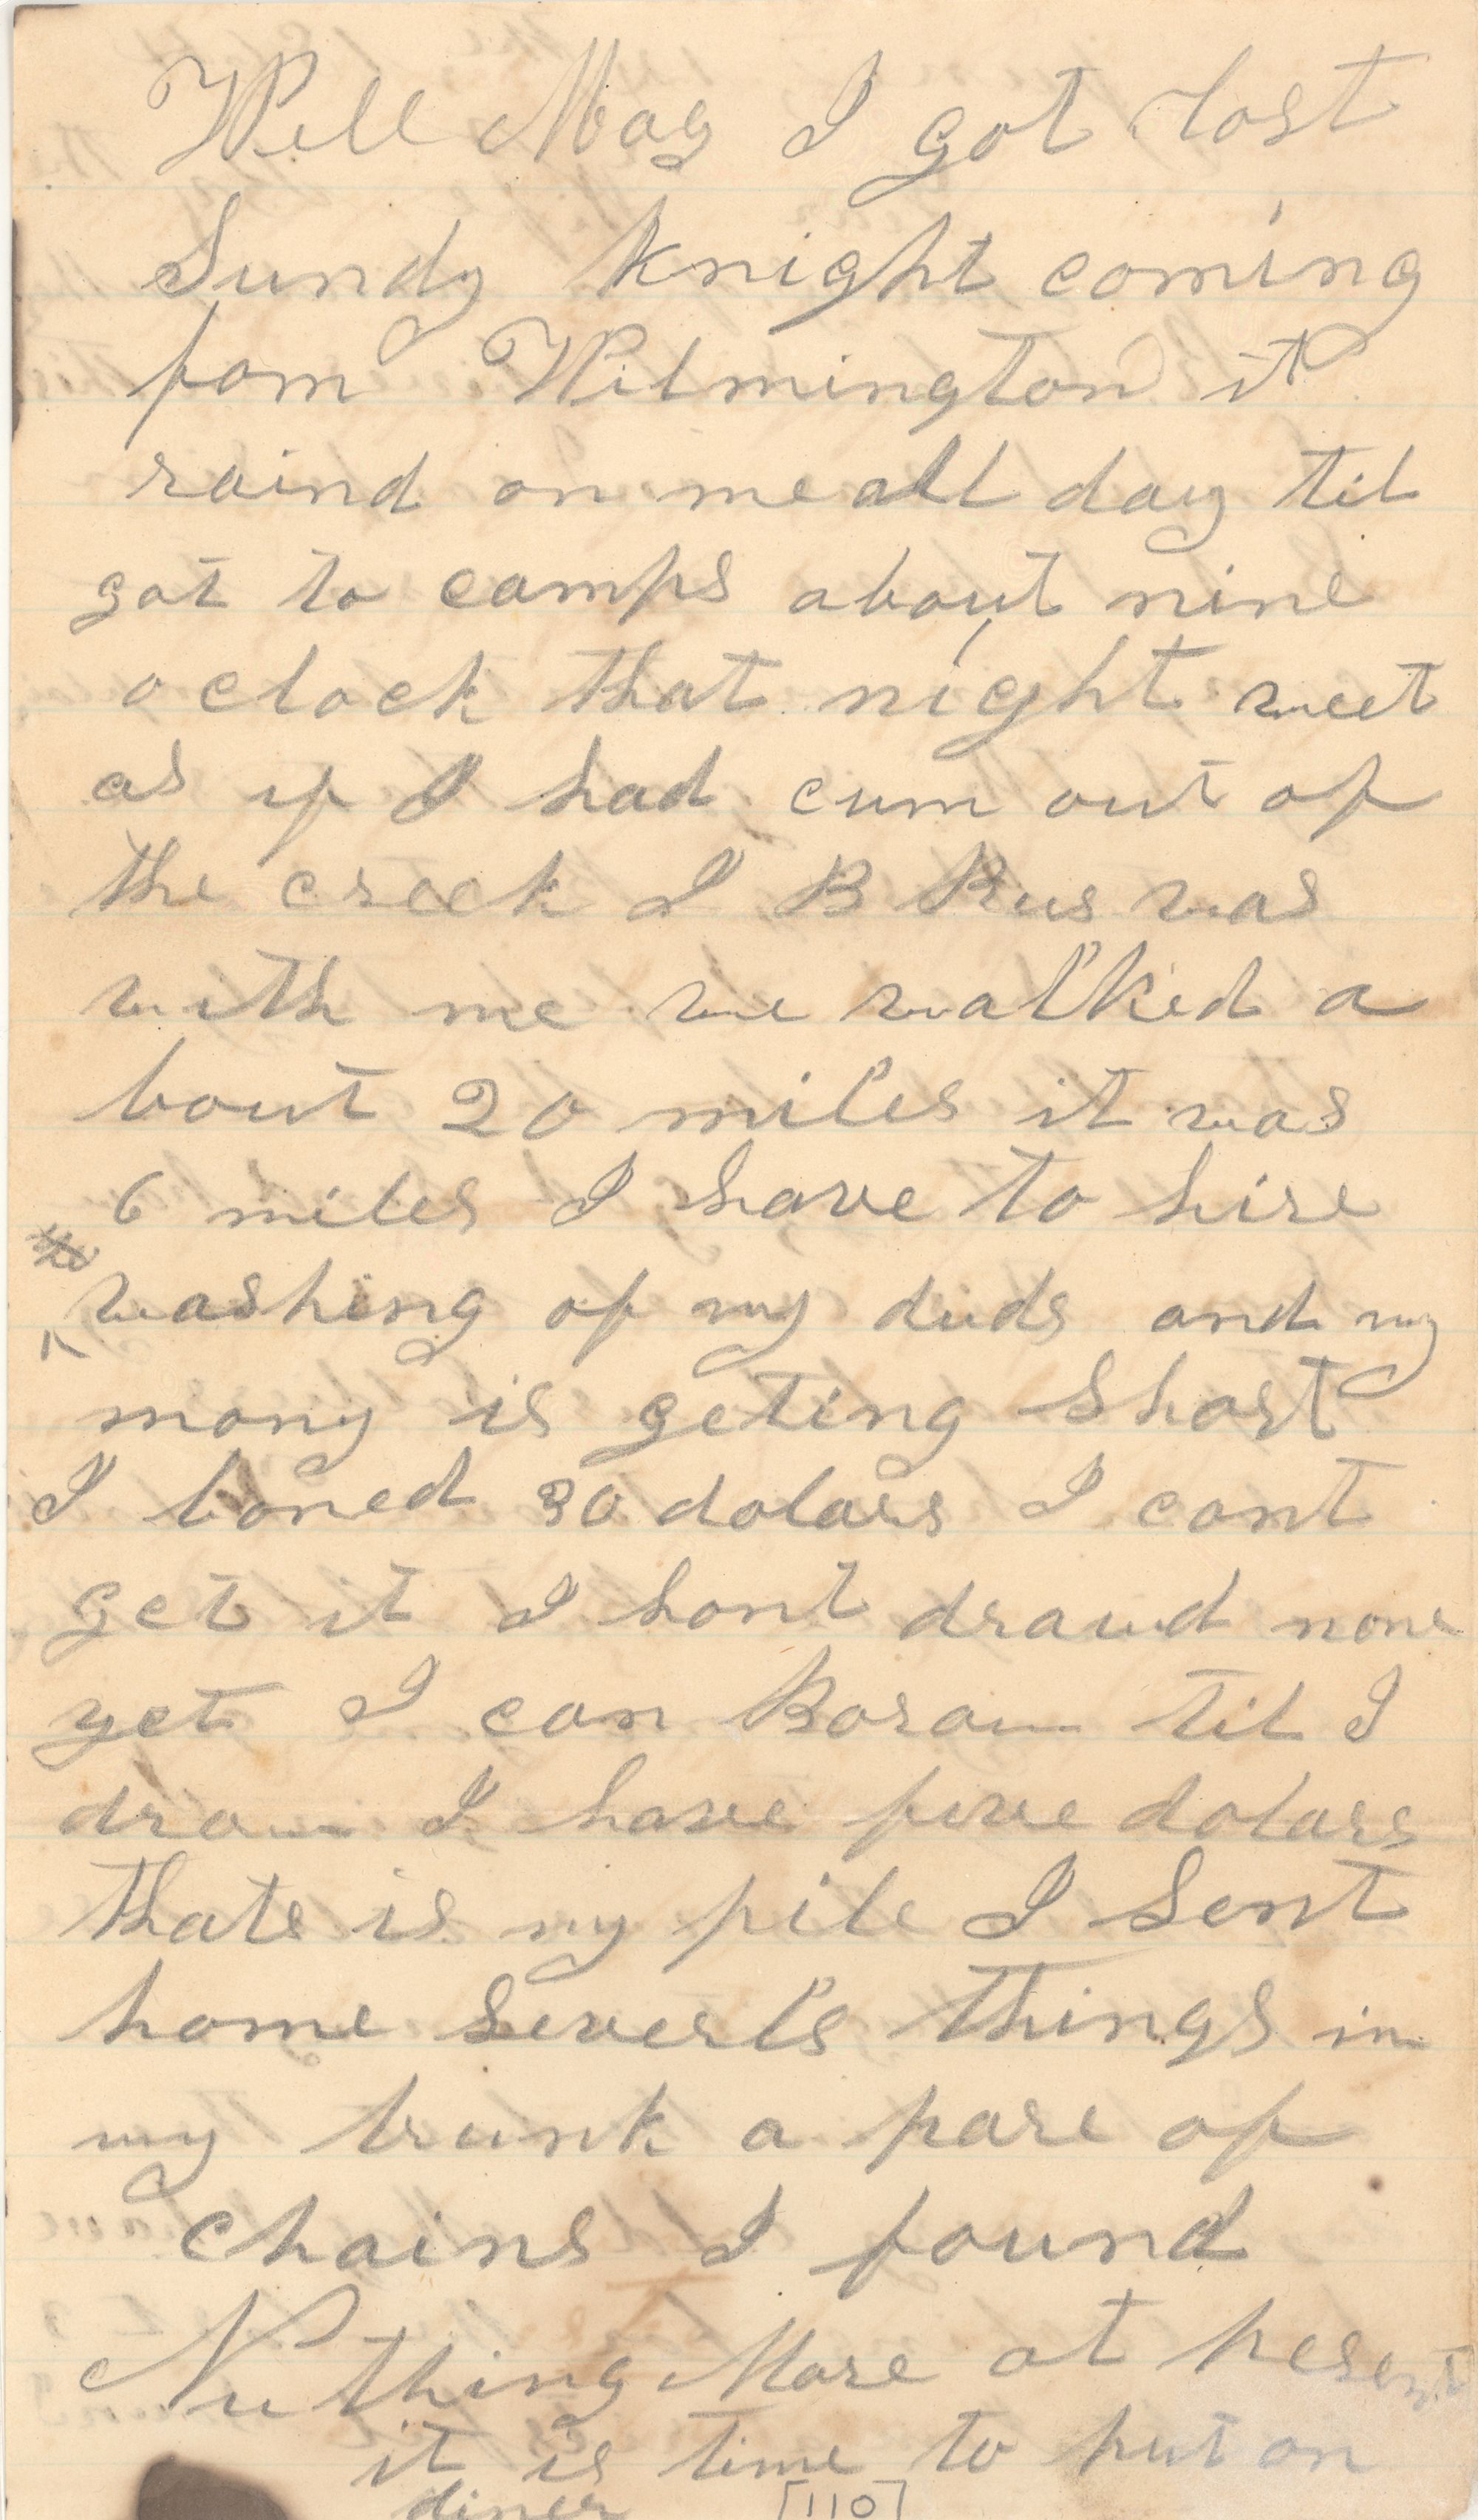 Well Mag I got lost
Sundy Knight coming
fom Wilmington it
raind on me all day til
got to camps about nine
o clock that night weet
as if I had cum out of
the creek I B Rus was
with me we walked a
bout 20 miles it was
6 miles I have to hire
washing of my duds and my
mony is geting short
I loned 30 dolars I cant
get it I hant drawd none
yet I can Boraw til I
draw I have five dolars
thats is my pile I Sent
home Severls things in
my trunk a pare of
chains I found
Nuthing More at present
it is time to put on
diner [110]